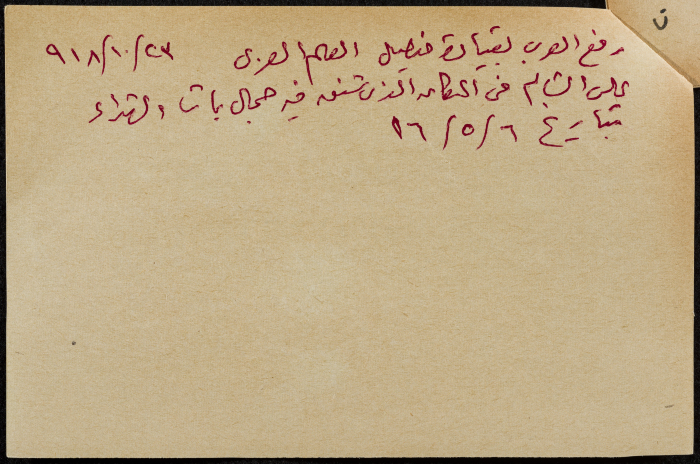 ن
رفع العرب بقيادة فيصل العلم العربي ٩١٨/١٠/٢٣
على الشام في المكان الذي شنق فيه جمال باشا الشهداء
بتاريخ ٦/٥/١٦